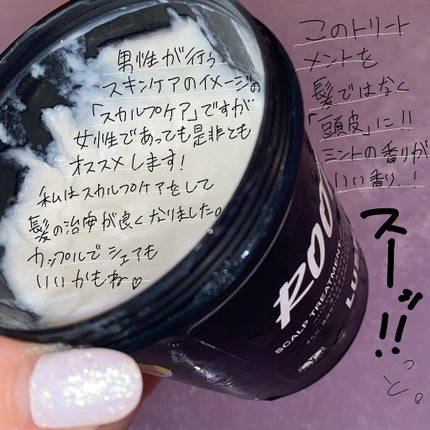 男性が行う
スキンケアのイメージの
「スカルプケア」ですが
女性であっても是非とも
オススメします!
私はスカルプケアをして
髪の治安が良くなりました。
カップルでシェアも
いいかもね♡
このトリート
メントを
髪ではなく
「頭皮」に!!
ミントの香りが
いい香り..!
スーッ!!
っと。
ROO
SCALP TREATMENT
LUS